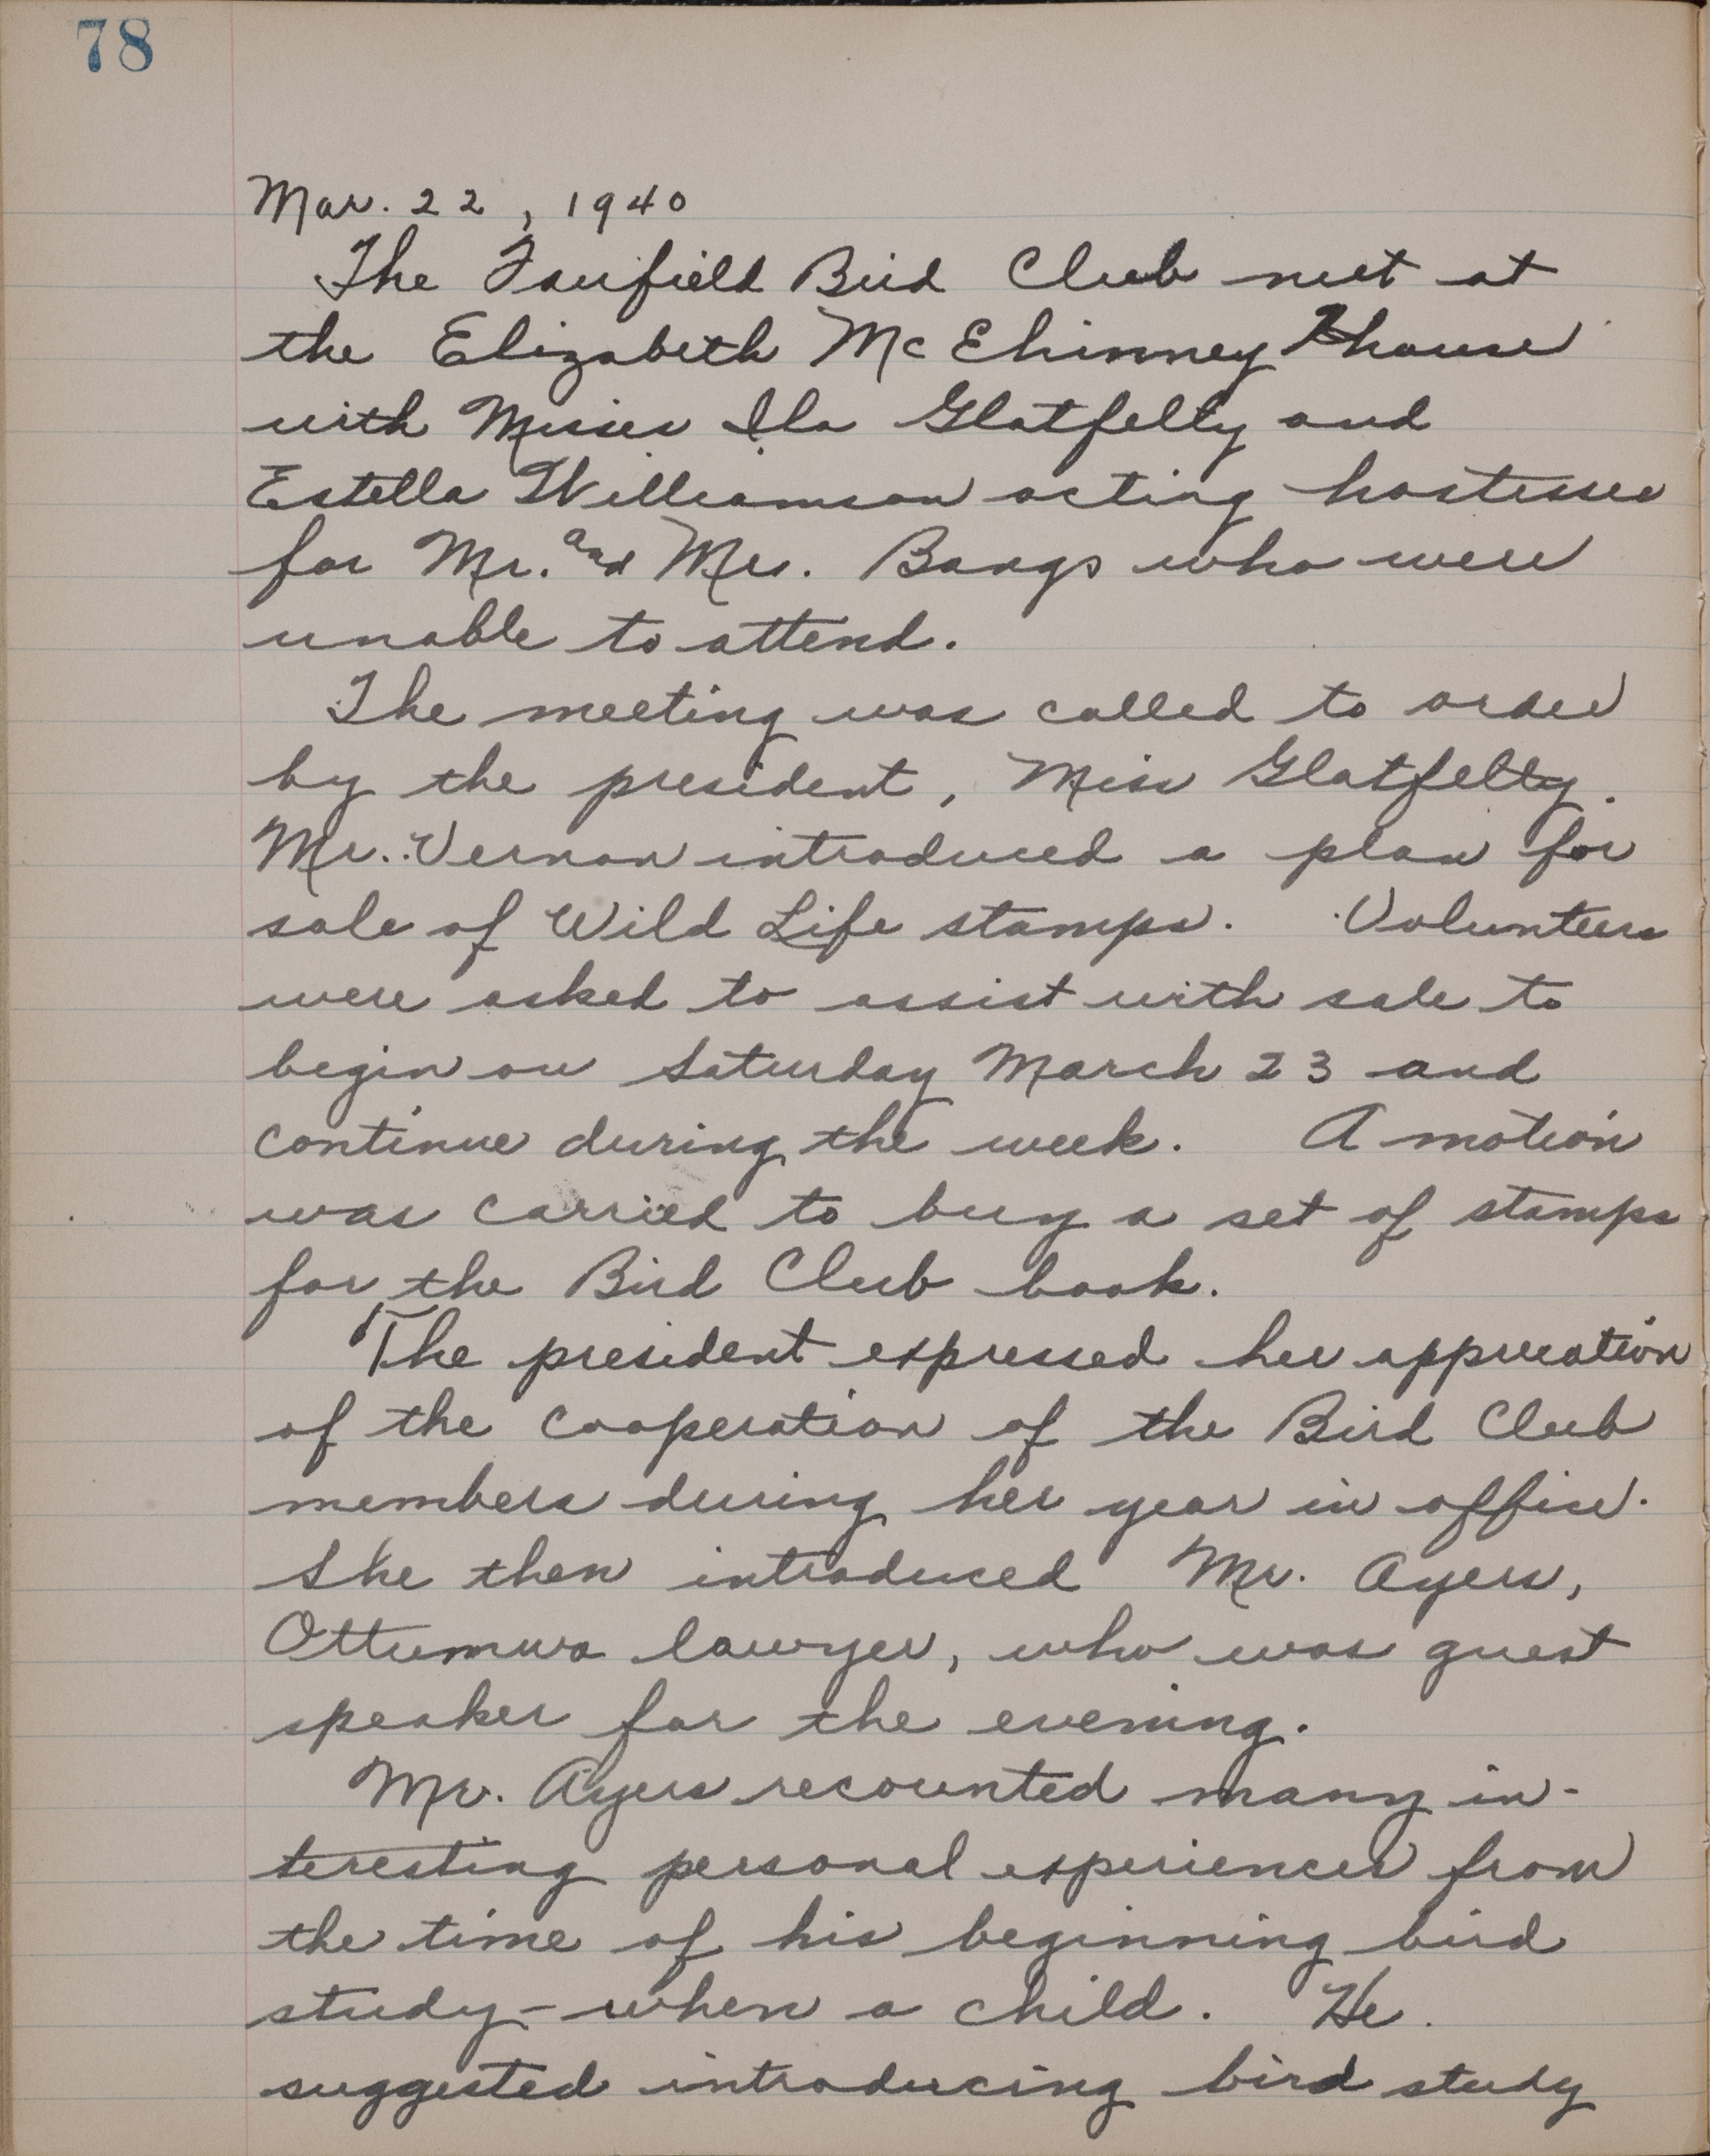 78
Mar. 22, 1940
The Fairfield Bird Club met at
the Elizabeth McElhinney house
with Misses Ila Glatfelty and
Estella Williamson acting hostesses
for Mr. and Mrs. Bangs who were
unable to attend.
The meeting was called to order
by the president, Miss Glatfelty.
Mr. Vernon introduced a plan for
sale of Wild Life stamps. Volunteers
were asked to assist with sale to
begin on Saturday March 23 and
continue during the week. A motion
was carried to buy a set of stamps
for the Bird Club book.
The president expressed her appreciation
of the cooperation of the Bird Club
members during her year in office.
She then introduced Mr. Ayers,
Ottumwa lawyer, who was guest
speaker for the evening.
Mr. Ayers recounted many in-
teresting personal experiences from
the time of his beginning bird
study - when a child. He
suggested introducing bird study